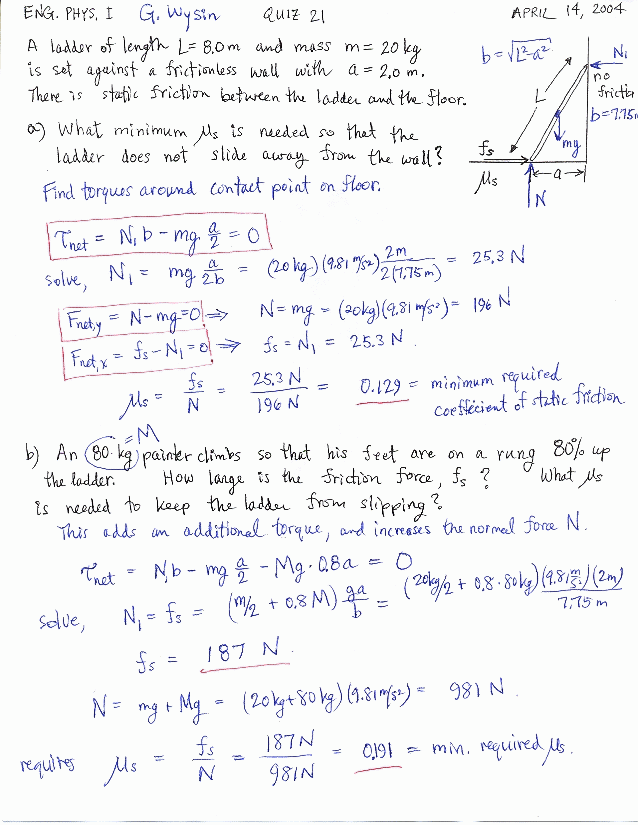 ENG. PHYS. I G. Wysin QUIZ 21 APRIL 14, 2004
A ladder of length L = 8.0 m and mass m = 20 kg
is set against a frictionless wall with a = 2.0 m.
There is static friction between the ladder and the floor.
b = √L²-a²
N₁
no
frictio
b=7.75m
L
mg
fs
μs
a
N
a) What minimum μs is needed so that the
ladder does not slide away from the wall?
Find torques around contact point on floor.
τnet = N₁b - mg a/2 = 0
solve, N₁ = mg a/2b = (20 kg)(9.81 m/s²) 2m/2(7.75m) = 25.3 N
Fnet,y = N-mg=0 ⇒ N = mg = (20kg)(9.81 m/s²) = 196 N
Fnet,x = fs - N₁ = 0 ⇒ fs = N₁ = 25.3 N.
μs = fs/N = 25.3 N/196 N = 0.129 = minimum required
coefficient of static friction.
= M
b) An 80. kg painter climbs so that his feet are on a rung 80% up
the ladder. How large is the friction force, fs? What μs
is needed to keep the ladder from slipping?
This adds an additional torque, and increases the normal force N.
τnet = N₁b - mg a/2 - Mg·0.8a = 0
solve, N₁ = fs = (m/2 + 0.8 M) ga/b = (20kg/2 + 0.8·80kg)(9.81 m/s²)(2m)/7.75 m
fs = 187 N.
N = mg + Mg = (20kg+80kg)(9.81m/s²) = 981 N.
requires μs = fs/N = 187N/981N = 0.191 = min. required μs.